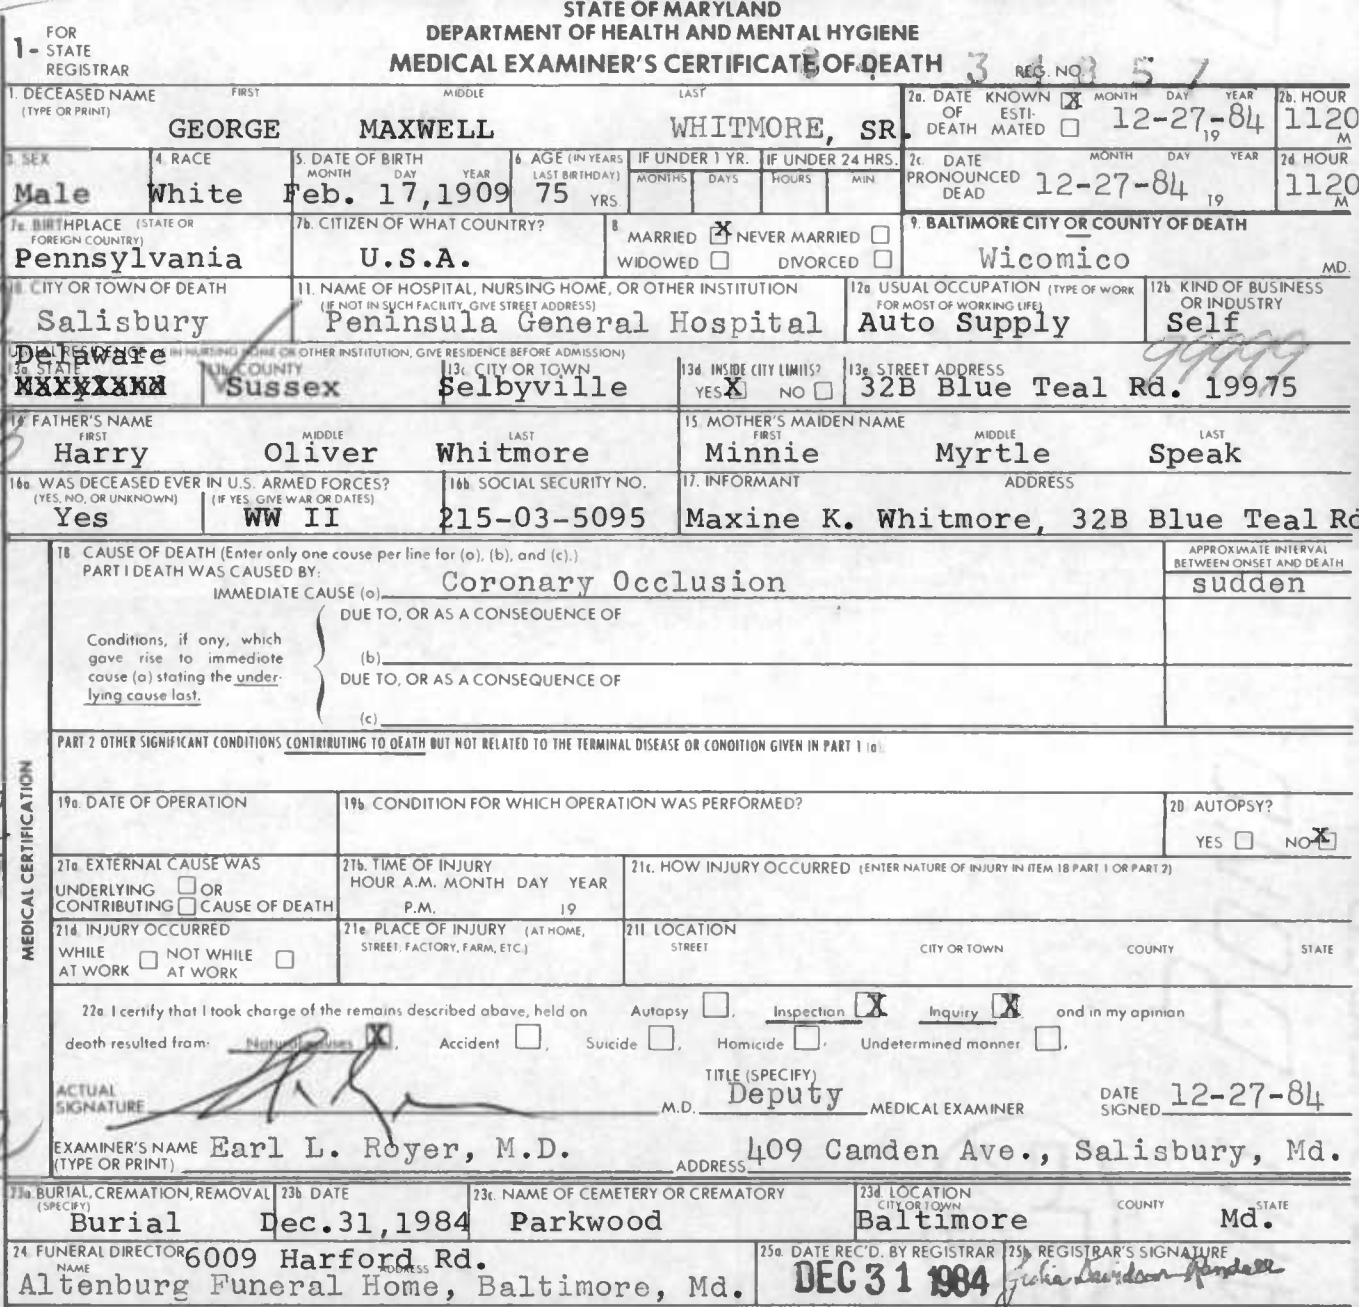 STATE OF MARYLAND
DEPARTMENT OF HEALTH AND MENTAL HYGIENE
MEDICAL EXAMINER'S CERTIFICATE OF DEATH
1- FOR STATE REGISTRAR
REG. NO
1. DECEASED NAME (TYPE OR PRINT) FIRST MIDDLE LAST
GEORGE MAXWELL WHITMORE, SR.
2a. DATE OF DEATH KNOWN X ESTIMATED MONTH DAY YEAR 12-27-84 19
2b. HOUR 1120 M
3. SEX Male
4. RACE White
5. DATE OF BIRTH MONTH DAY YEAR Feb. 17,1909
6. AGE (IN YEARS LAST BIRTHDAY) 75 YRS.
IF UNDER 1 YR. MONTHS DAYS
IF UNDER 24 HRS. HOURS MIN
2c. DATE PRONOUNCED DEAD MONTH DAY YEAR 12-27-84 19
2d HOUR 1120 M
7a. BIRTHPLACE (STATE OR FOREIGN COUNTRY) Pennsylvania
7b. CITIZEN OF WHAT COUNTRY? U.S.A.
8 MARRIED X NEVER MARRIED
WIDOWED DIVORCED
9. BALTIMORE CITY OR COUNTY OF DEATH Wicomico MD.
10. CITY OR TOWN OF DEATH Salisbury
11. NAME OF HOSPITAL, NURSING HOME, OR OTHER INSTITUTION (IF NOT IN SUCH FACILITY, GIVE STREET ADDRESS) Peninsula General Hospital
12a. USUAL OCCUPATION (TYPE OF WORK FOR MOST OF WORKING LIFE) Auto Supply
12b. KIND OF BUSINESS OR INDUSTRY Self
USUAL RESIDENCE (IN NURSING HOME OR OTHER INSTITUTION, GIVE RESIDENCE BEFORE ADMISSION)
99999
13a. STATE Delaware
13b. COUNTY Sussex
13c. CITY OR TOWN Selbyville
13d. INSIDE CITY LIMITS? YES X NO
13e. STREET ADDRESS 32B Blue Teal Rd. 19975
14. FATHER'S NAME FIRST MIDDLE LAST
Harry Oliver Whitmore
15. MOTHER'S MAIDEN NAME FIRST MIDDLE LAST
Minnie Myrtle Speak
16a. WAS DECEASED EVER IN U.S. ARMED FORCES?
(YES, NO, OR UNKNOWN) Yes
(IF YES, GIVE WAR OR DATES) WW II
16b. SOCIAL SECURITY NO. 215-03-5095
17. INFORMANT ADDRESS
Maxine K. Whitmore, 32B Blue Teal Rd
MEDICAL CERTIFICATION
18. CAUSE OF DEATH (Enter only one cause per line for (a), (b), and (c).)
PART I DEATH WAS CAUSED BY:
IMMEDIATE CAUSE (a) Coronary Occlusion
APPROXIMATE INTERVAL BETWEEN ONSET AND DEATH
sudden
DUE TO, OR AS A CONSEQUENCE OF
Conditions, if any, which
gave rise to immediate
cause (a) stating the under-
lying cause last.
(b)
DUE TO, OR AS A CONSEQUENCE OF
(c)
PART 2 OTHER SIGNIFICANT CONDITIONS CONTRIBUTING TO DEATH BUT NOT RELATED TO THE TERMINAL DISEASE OR CONDITION GIVEN IN PART 1 (a).
19a. DATE OF OPERATION
19b. CONDITION FOR WHICH OPERATION WAS PERFORMED?
20 AUTOPSY?
YES NO X
21a. EXTERNAL CAUSE WAS
UNDERLYING OR
CONTRIBUTING CAUSE OF DEATH
21b. TIME OF INJURY
HOUR A.M. MONTH DAY YEAR
P.M. 19
21c. HOW INJURY OCCURRED (ENTER NATURE OF INJURY IN ITEM 18 PART 1 OR PART 2)
21d. INJURY OCCURRED
WHILE AT WORK NOT WHILE AT WORK
21e. PLACE OF INJURY (AT HOME, STREET, FACTORY, FARM, ETC.)
21f. LOCATION
STREET CITY OR TOWN COUNTY STATE
22a. I certify that I took charge of the remains described above, held on Autopsy , Inspection X Inquiry X and in my opinion
death resulted from: Natural causes X , Accident , Suicide , Homicide , Undetermined manner .
ACTUAL SIGNATURE M.D.
TITLE (SPECIFY) Deputy MEDICAL EXAMINER
DATE SIGNED 12-27-84
EXAMINER'S NAME (TYPE OR PRINT) Earl L. Royer, M.D.
ADDRESS 409 Camden Ave., Salisbury, Md.
23a. BURIAL, CREMATION, REMOVAL (SPECIFY) Burial
23b. DATE Dec.31,1984
23c. NAME OF CEMETERY OR CREMATORY Parkwood
23d. LOCATION CITY OR TOWN COUNTY STATE
Baltimore Md.
24. FUNERAL DIRECTOR 6009 Harford Rd.
NAME ADDRESS
Altenburg Funeral Home, Baltimore, Md.
25a. DATE REC'D. BY REGISTRAR DEC 31 1984
25b. REGISTRAR'S SIGNATURE
Julia Davidson-Randall